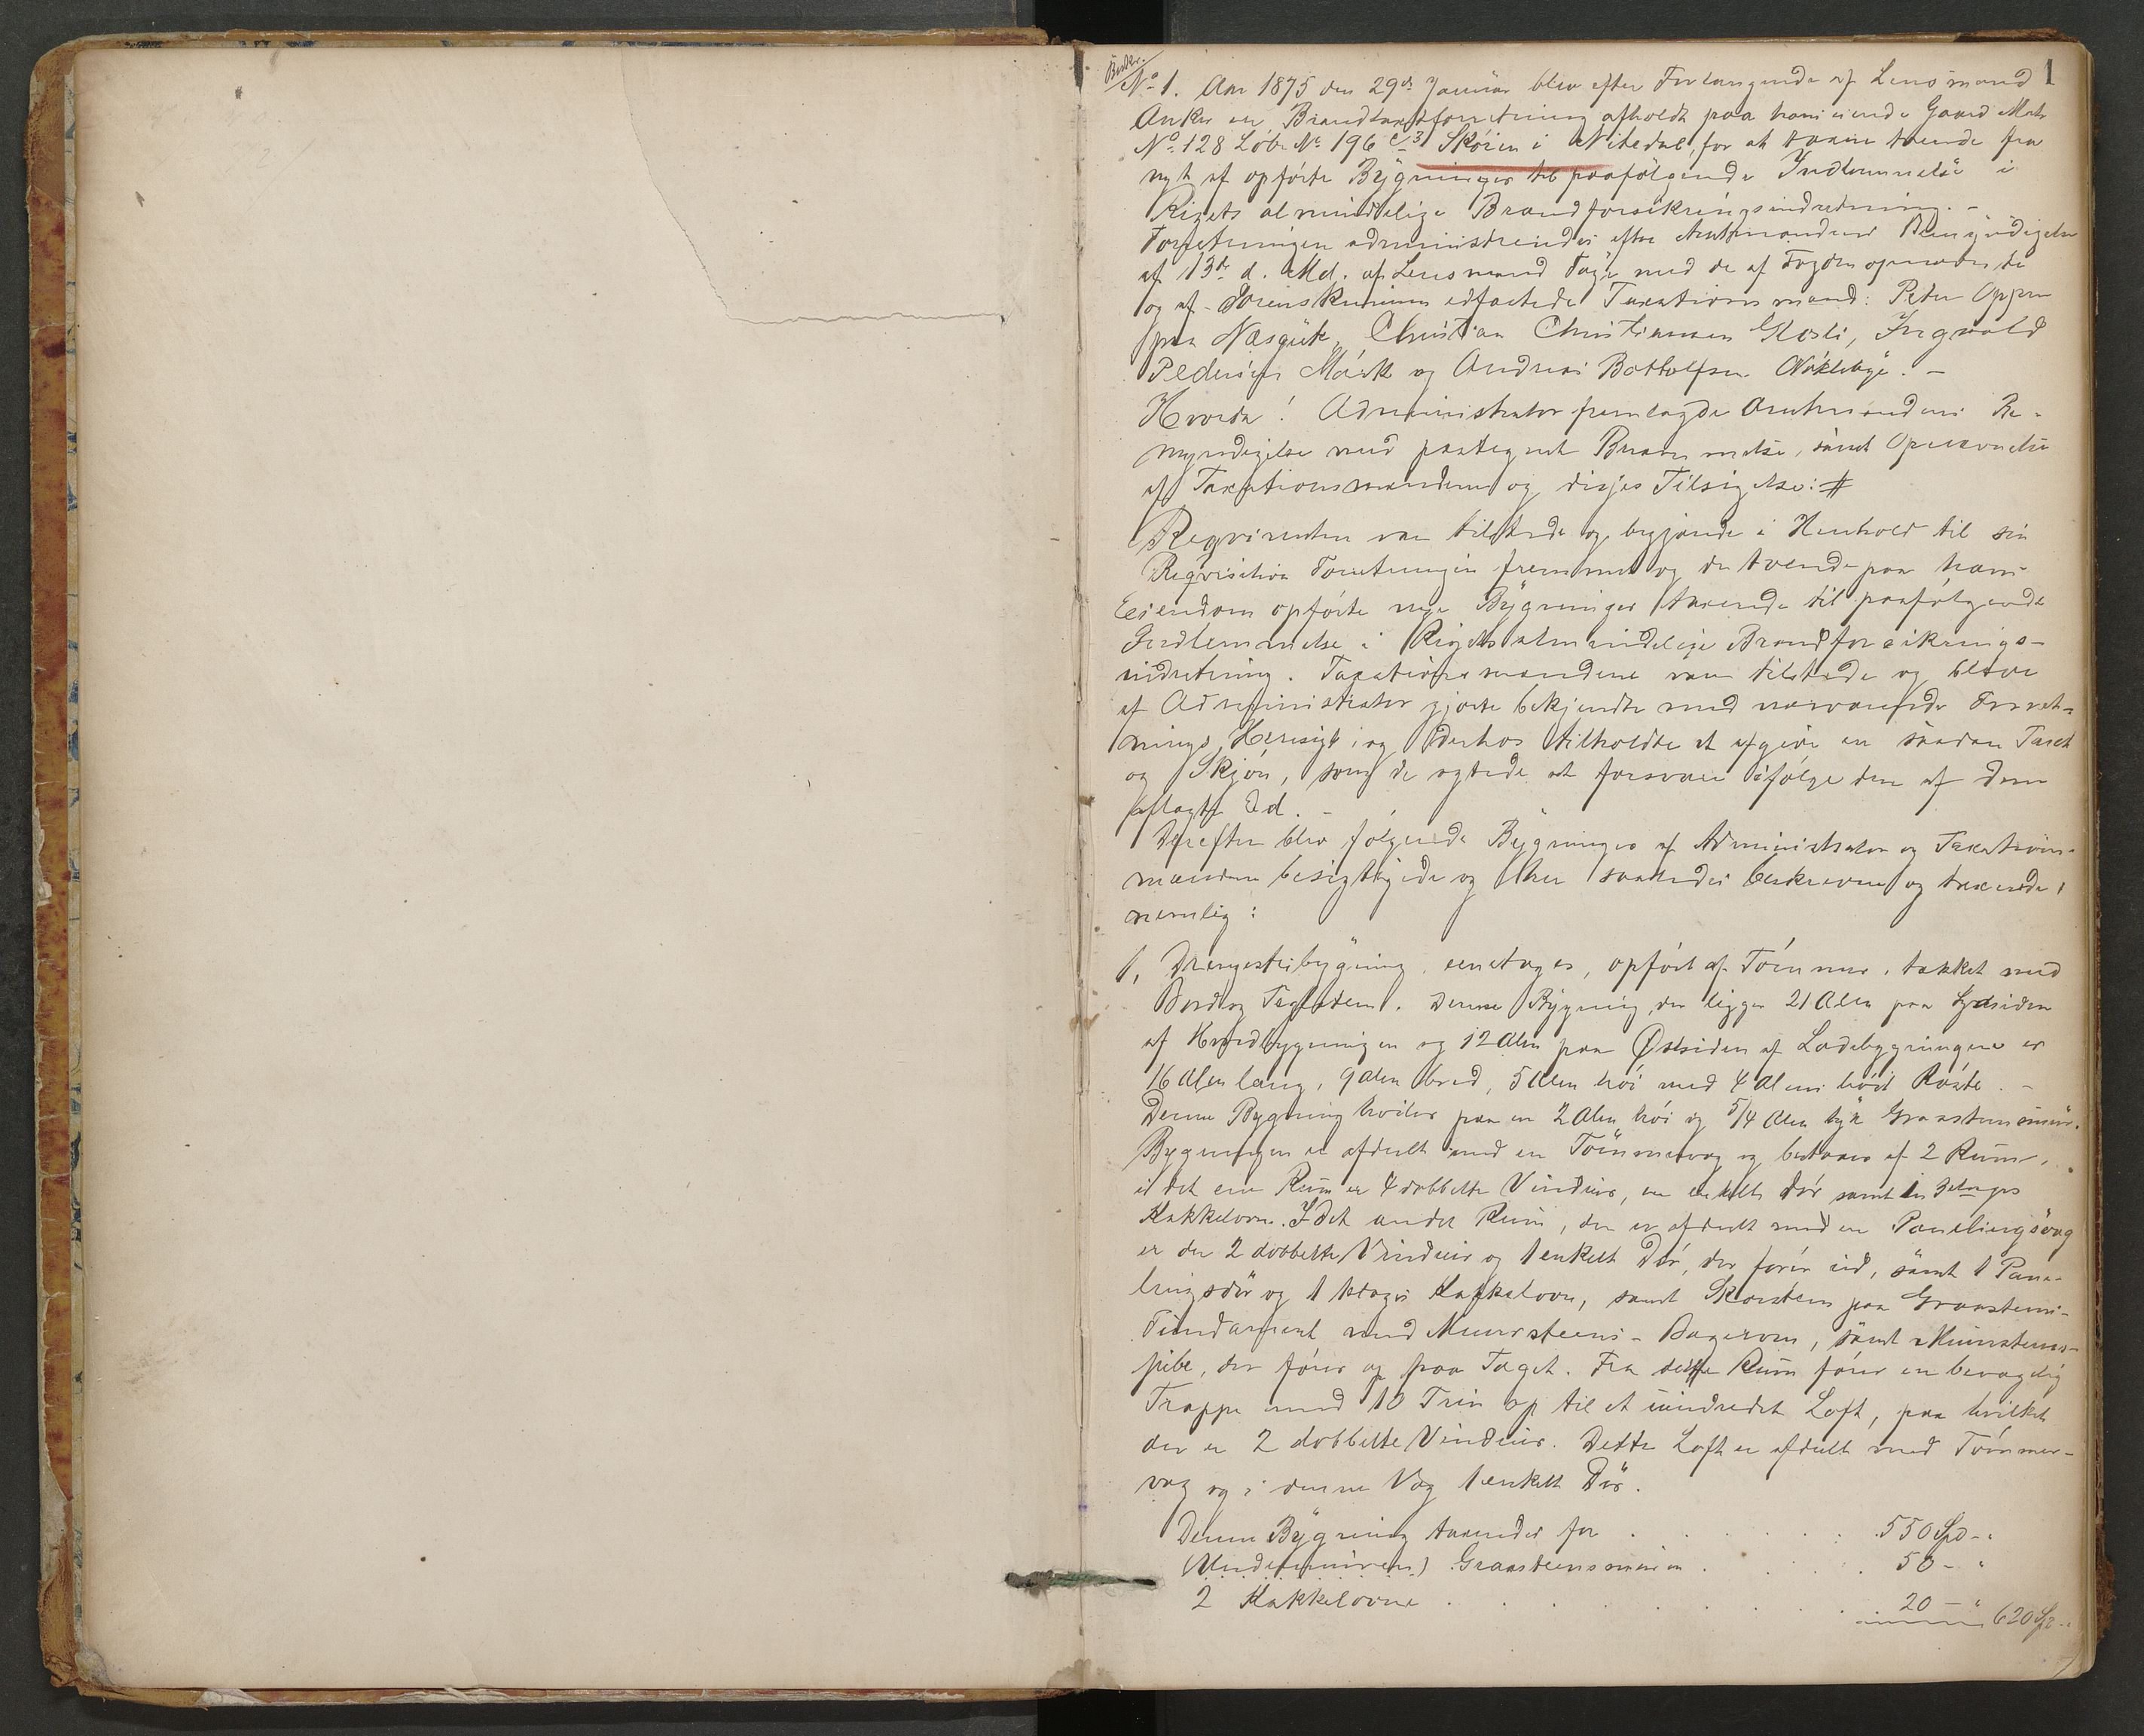 1
No 1. Aar 1875 den 29de Januar blev efter Forlangende af Lensmand
Anker en Brandtaxtforretning afholdt paa hans eiende Gaard Matr
No 128 Løbe No 196 c3 Skøien i Nitedal, for at taxere tvende fra
nyt af opførte Bygninger til paafølgende Indlemmelse i
Rigets almindelige Brandforsikringsindretning. -
Forretningen administreredes efter Amtmandens Bemyndigelse
af 13de d. Md. af Lensmand Fage med de af Fogden opnævnte
og af Sorenskriveren edfæstede Taxationsmænd: Peter
paa Næsguten, Christian Christiansen Glosli, Ingvald
Pedersen Mørk og Andreas Bottolfsen Nøklebye. -
Hvorda! Administrator fremlagde Amtmandens Be-
myndigelse med paategnet Berammelse, samt Opnævnelse
af Taxationsmændene og disses Tilsigelse: #
Reqvirenten var tilstede og begjærede i Henhold til sin
Reqvisition Forretningen fremmet og de tvende paa hans
Eiendom opførte nye Bygninger taxerede til paafølgende
Indlemmelse i Rigets almindelige Brandforsikrings-
indretning. Taxationsmændene vare tilstede og bleve
af Administrator gjorte bekjendte med nærværende Forret-
nings Hensigt, og derhos tilholdte at afgive en saadan Taxt
og Skjøn, som de agtede at forsvare ifølge den af dem
aflagte Ed. -
Derefter blev følgende Bygninger af Administrator og Taxations-
mændene besigtigede og her saaledes beskrevne og taxerede,
nemlig:
1, Drengestubygning, eenetages, opført af Tømmer, tækket med
Bord og Taglsteen. Denne Bygning, der ligger 21 Alen paa Sydsiden
af Hovedbygningen og 12 Alen paa Østsiden af Ladebygningen er
16 Alen lang, 9 Alen bred, 5 Alen høi med 4 Alens høit Røste. -
Denne Bygning hviler paa en 2 Alen høi og 5/4 Alen tyk Graasteensmuur.
Bygningen er afdeelt med en Tømmervæg og bestaaer af 2 Rum,
i det ene Rum er 4 dobbelte Vinduer, en enkelt Dør samt en 3etages
Kakkelovn. I det andet Rum, der er afdeelt med en Panelingsvæg
er der 2 dobbelte Vinduer og 1 enkelt Dør, der fører ud, samt 1 Pane-
lingsdør og 1 etages Kakkelovn, samt Skorsteen paa Graasteens-
Fundament med Muursteens-Bagerovn, samt Muursteens-
pibe, der fører op paa Taget. Fra dette Rum fører en bevægelig
Trappe med 10 Trin op til et uindredet Loft, paa hvilket
der er 2 dobbelte Vinduer. Dette Loft er afdeelt med Tømmer-
væg og i denne Væg 1 enkelt Dør.
Denne Bygning taxeredes for . . . . . . 550 Spd -
(Undermuren) Graasteensmuren . . . . 50 - "
2 Kakkelovne . . . . . . . . 20 - " 620 Spd -